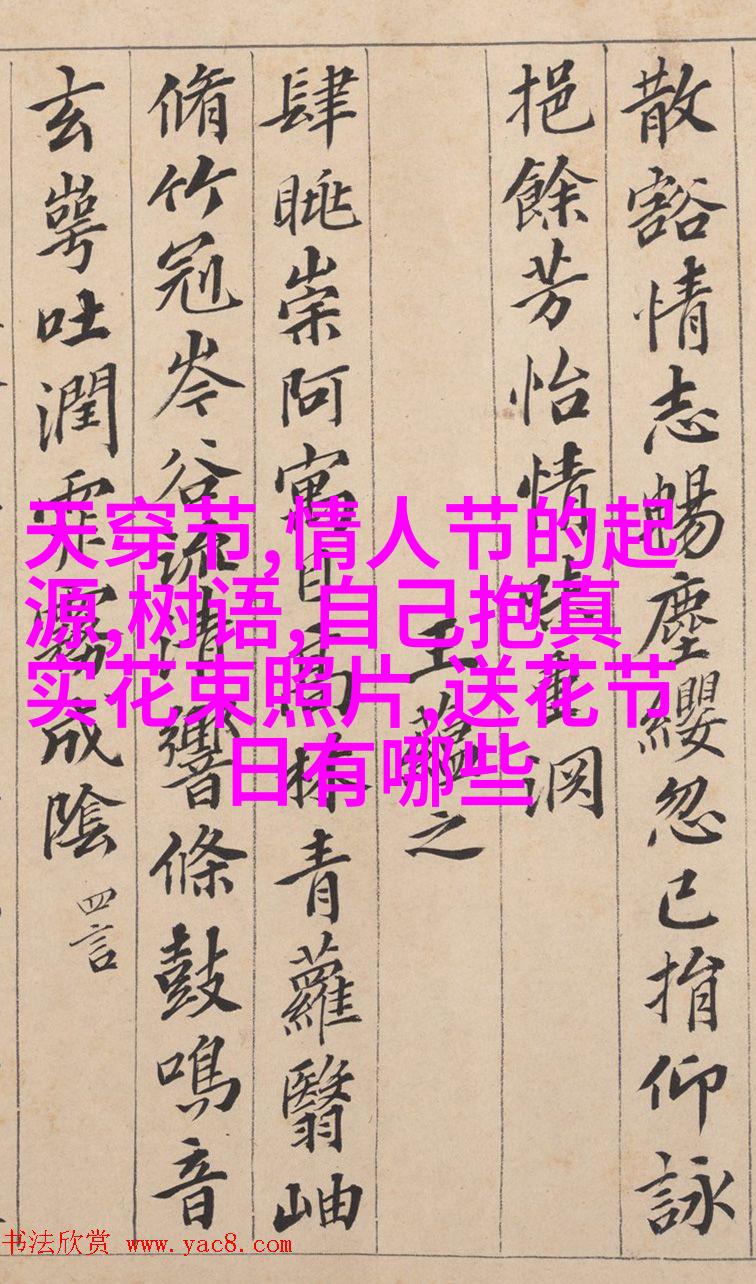 散豁情志暢塵纓忽已捐仰詠
挹餘芳怡情味重渊
王蘊之
肆眺崇阿寓目高林青蘿翳岫
脩竹冠岑谷流清響條鼓鳴音
玄崿吐潤霏霧成陰 四言
天穿节,情人节的起
源,树语,自己抱真
实花束照片,送花节
日有哪些
书法欣赏 www.yac8.com